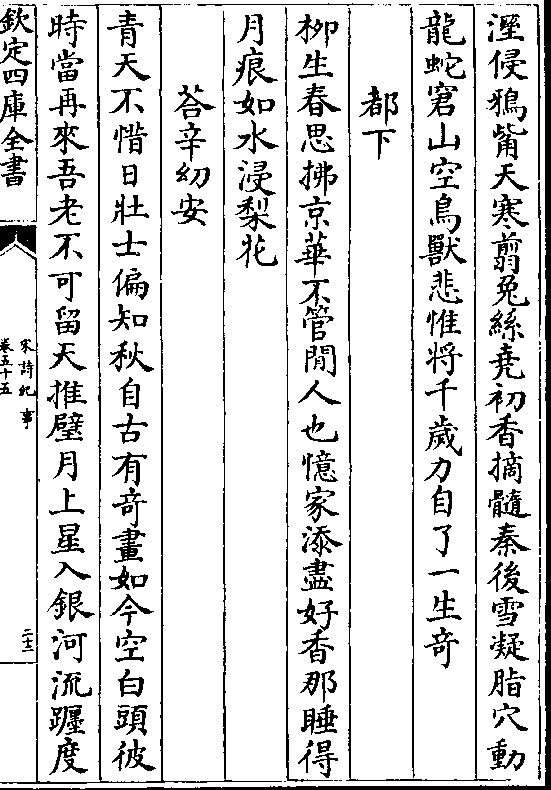 溼侵鴉觜天寒翦兎絲堯初香摘髓秦後雪凝脂穴動
龍蛇窘山空鳥獸悲惟將千歲力自了一生竒
都下
栁生春思拂京華不管閒人也憶家添盡好香那睡得
月痕如水浸棃花
荅辛幼安
青天不惜日壯士偏知秋自古有竒畫如今空白頭彼
時當再來吾老不可留天推壁月上星入銀河流躔度
欽定四庫全書
宋詩紀事
卷五十五
二十二